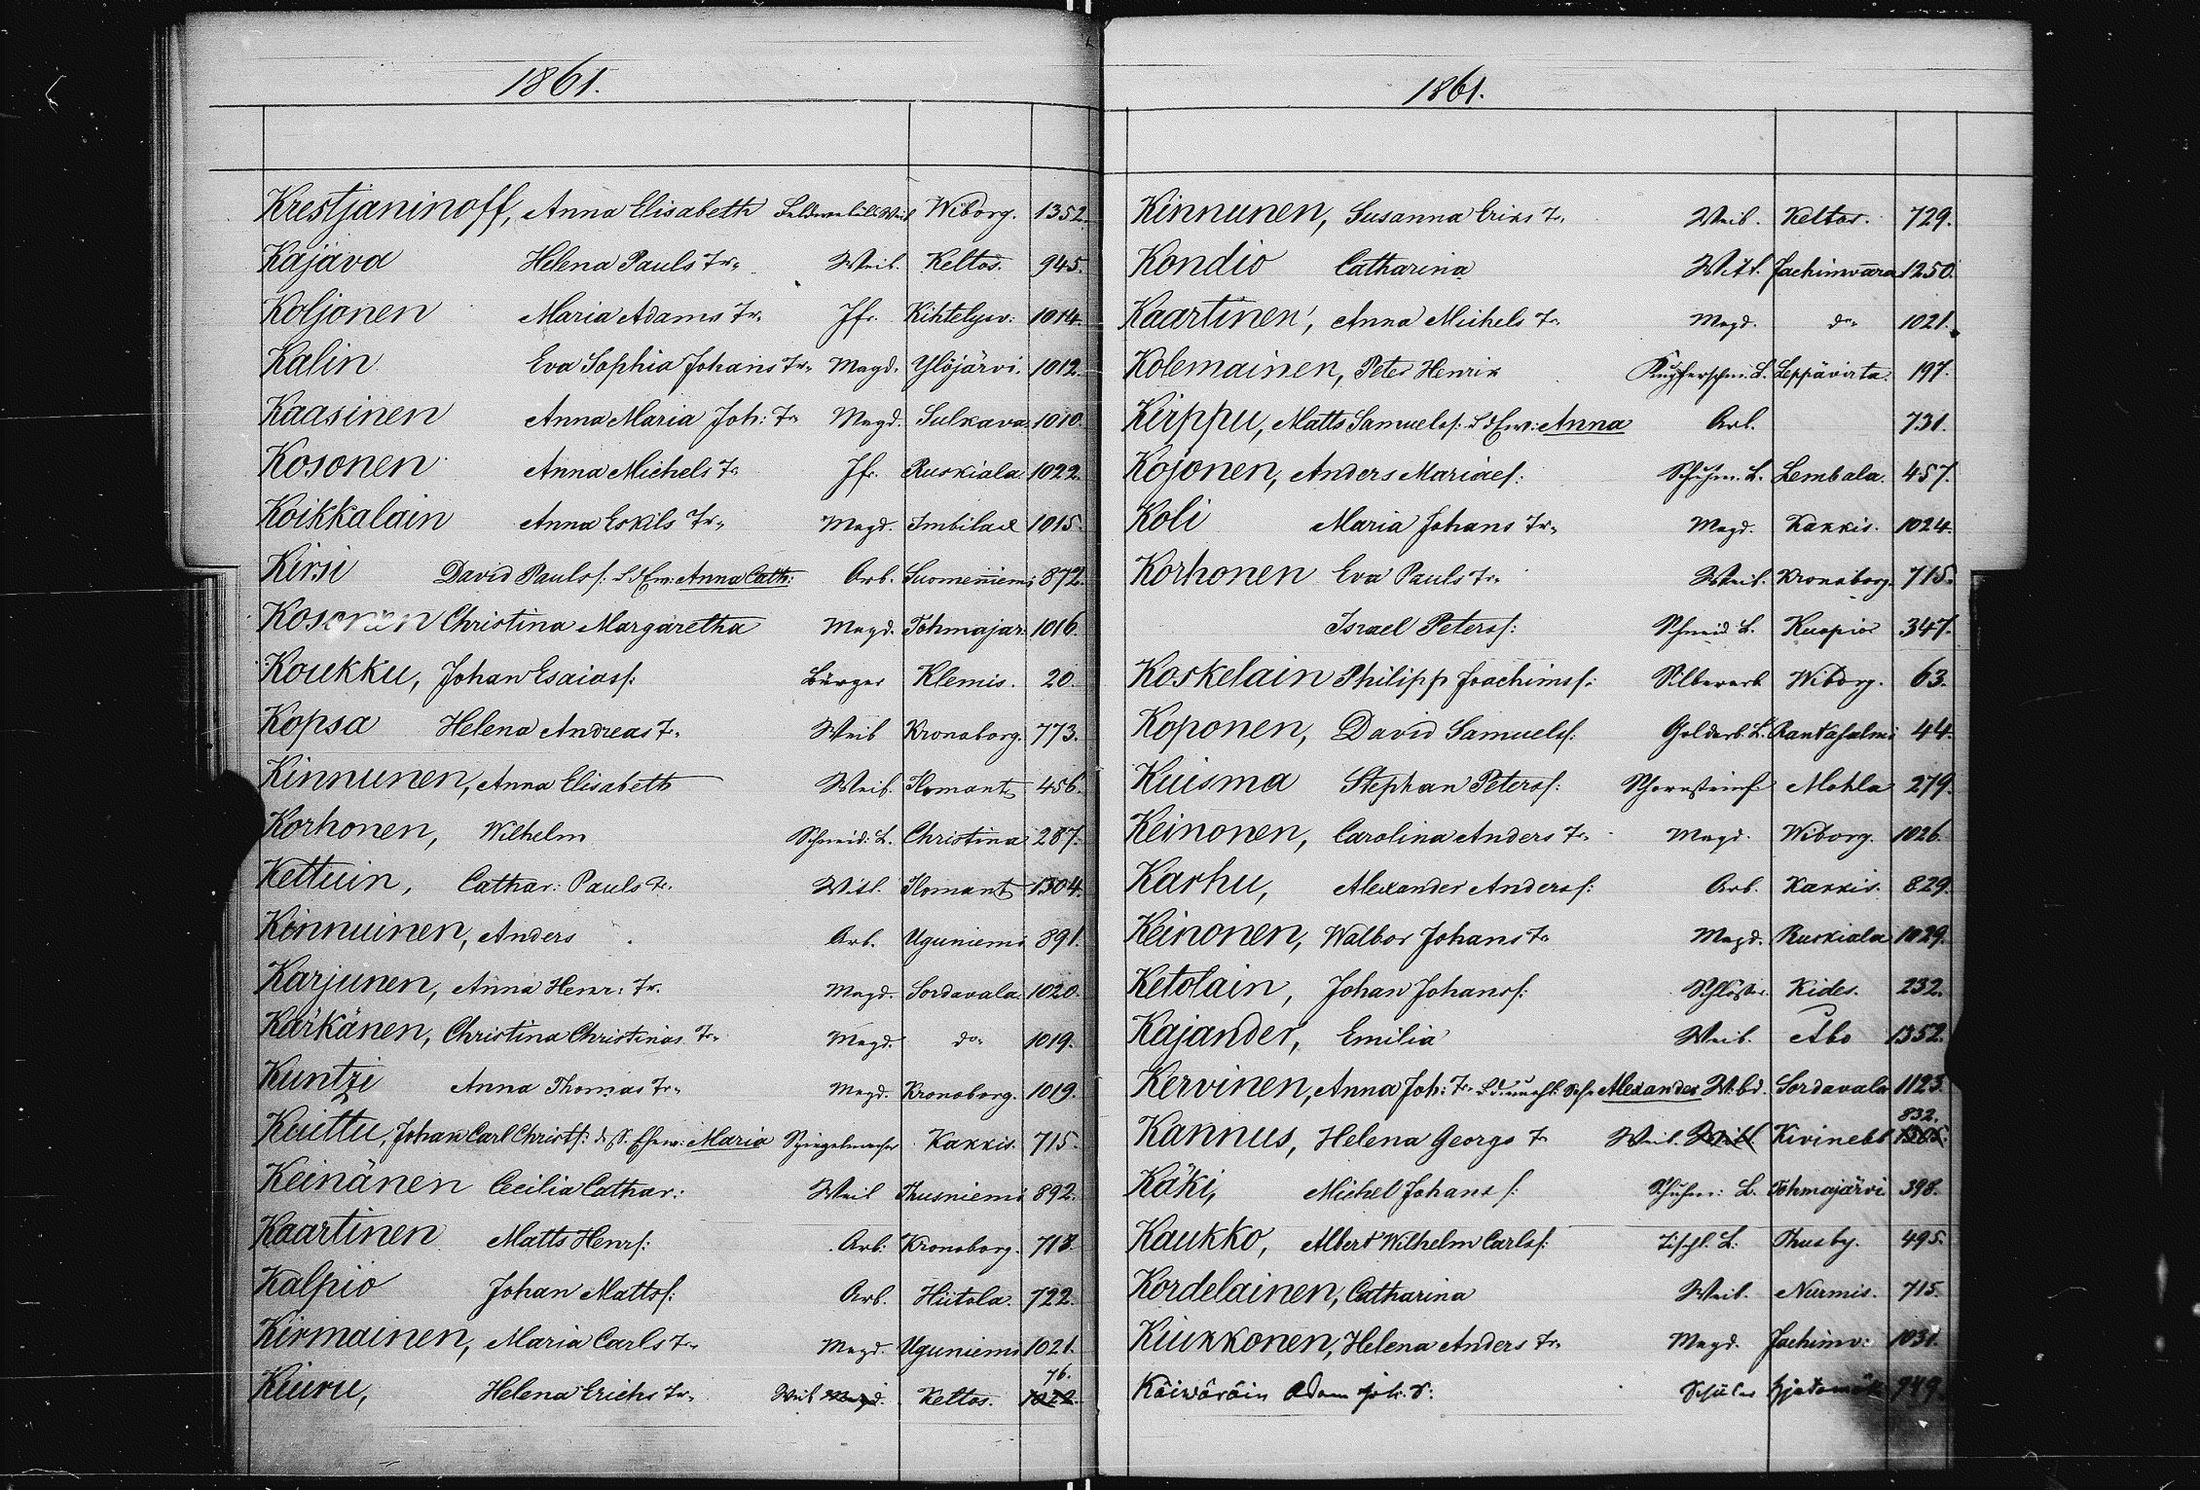 1861.
Krestjaninoff, Anna Elisabeth Feldwebels Weib Wiborg. 1352.
Kajäva Helena Pauls Tr. Weib. Keltos. 945.
Koljonen Maria Adams Tr. Jfr. Kihtelysv: 1014.
Kalin Eva Sophia Johans Tr. Magd. Ylöjärvi. 1012.
Kaasinen Anna Maria Joh: Tr. Magd. Sulkava. 1010.
Kosonen Anna Michels Tr. Jfr. Ruskiala 1022.
Koikkalain Anna Eskils Tr. Magd. Imbilax 1015.
Kirsi David Pauls f: Anna Cath: Arb. Suomenniemi 872.
Kosonen Christina Margaretha Magd. Tohmajar. 1016.
Koukku, Johan Esaias f: Bürger Klemis. 20.
Kopsa Helena Andreas Tr. Weib Kronoborg. 773.
Kinnunen, Anna Elisabeth Weib. Ilomants 456.
Korhonen, Wilhelm Schneid: L. Christina 287.
Kettuin, Cathar: Pauls Tr. Witl. Ilomants 1304.
Kinnuinen, Anders Arb. Uguniemi 891.
Karjunen, Anna Henr: Tr. Magd. Sordavala 1020.
Karkänen, Christina Christinas Tr. Magd. do. 1019.
Kuntzi Anna Thomas Tr. Magd. Kronoborg. 1019.
Kuittu, Johan Carl Christf: Maria Spiegelmacher Kaxkis. 715.
Keinänen Cecilia Cathar: Weib Thusniemi 892.
Kaartinen Matts Henrs f: Arb: Kronoborg. 718.
Kalpio Johan Matts f: Arb. Hiitola. 722.
Kirmainen, Maria Carls Tr. Magd. Uguniemi 1021.
Kiuru, Helena Erichs Tr. Weib Magd. Keltos. 76. 1022.
1861.
Kinnunen, Susanna Eriks Tr. Weib. Keltos. 729.
Kondio Catharina Witt. Jachimvara 1250.
Kaartinen, Anna Michels Tr. Magd. do. 1021.
Kolemainen, Peter Henrik Kupferschm. L. Leppävirta. 197.
Kirppu, Matts Samuels f: Anna Arb. 731.
Kojonen, Anders Mariae f: Schuhm. L. Lembala. 457.
Koli Maria Johans Tr. Magd. Kaxkis. 1024.
Korhonen Eva Pauls Tr. Weib. Kronoborg. 715.
Israel Peters f: Schneid L. Kuopio 347.
Koskelain Philipp Joachims f: Silberarb Wiborg. 63.
Koponen, David Samuels f: Goldarb. L. Rantasalmi 44.
Kuisma Stephan Peters f: Schornsteinf. Mohla 279.
Keinonen, Carolina Anders Tr. Magd. Wiborg. 1026.
Karhu, Alexander Anders f: Arb. Kaxkis. 829.
Keinonen, Walbor Johans Tr. Magd. Ruskiala 1029.
Ketolain, Johan Johans f: Schlosser. Kides. 232.
Kajander, Emilia Weib. Åbo 1352.
Kervinen, Anna Joh: Tr. Alexander Sordavala 1123.
Kannus, Helena Georgs Tr Weib. Witt. Kivinebb 832. 1305.
Käki, Michel Johans f: Schuhm: L. Tohmajärvi 398.
Kaukko, Albert Wilhelm Carls f: Tischl. L. Thusby. 495.
Kordelainen, Catharina Weib. Nurmis. 715.
Kiukkonen, Helena Anders Tr. Magd. Jachimv: 1031.
Käiwäräin Adam Joh. S. Schüler 749.